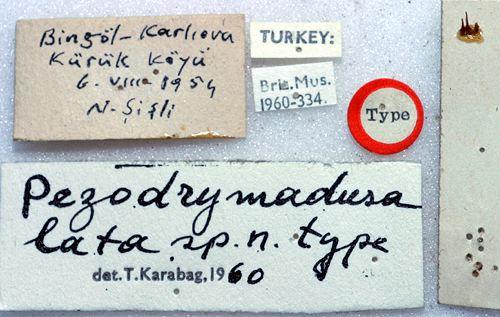 Bingöl-Karlıova
Kürük Köyü
6.VIII.1954
N.Şifli
TURKEY:
Brit.Mus.
1960-334.
Type
Pezodrymadusa
lata sp.n. type
det.T.Karabag,1960